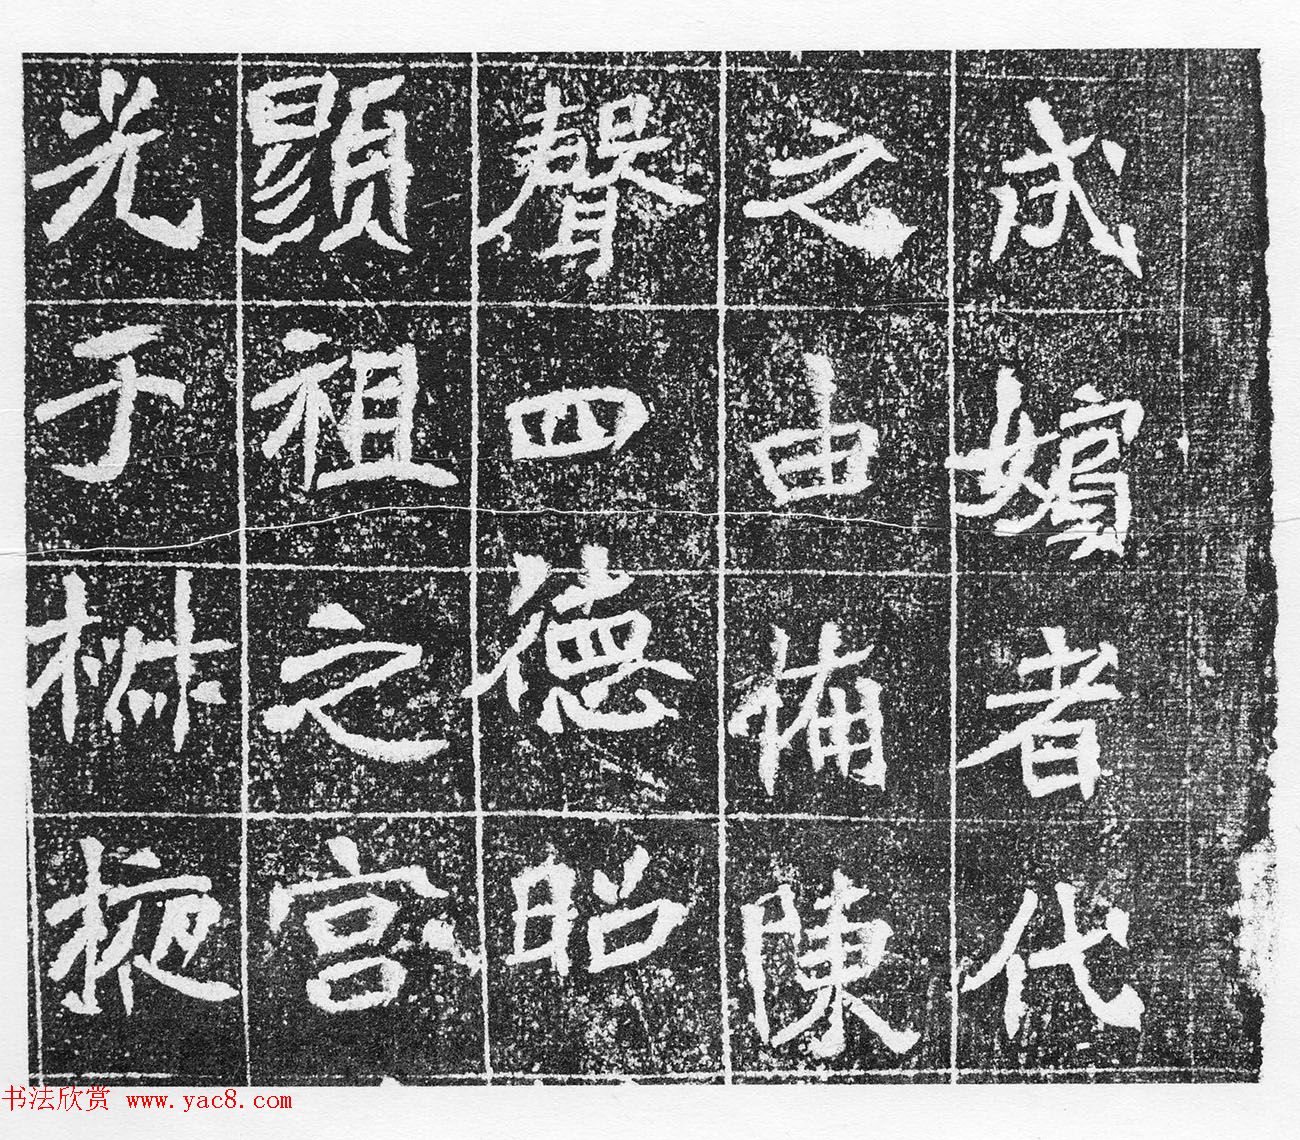 成嬪者代
之由備陳
聲四德昭
顯祖之宮
光于椒掖
书法欣赏 www.yac8.com